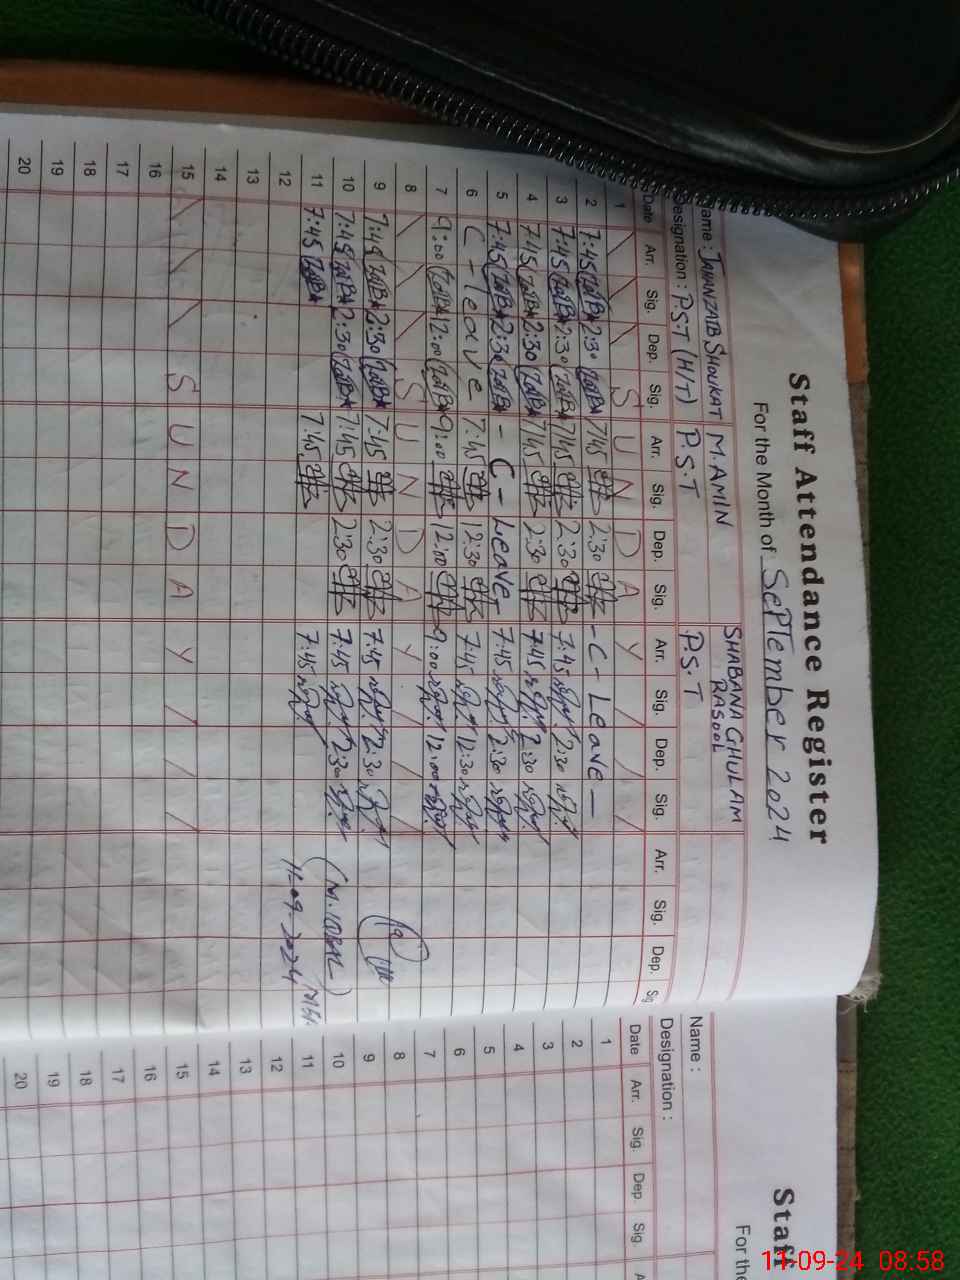 Staff Attendance Register
For the Month of SePTember 2024
Name : JAHANZAIB SHOUKAT M. AMIN SHABANA GHULAM RASOOL
Designation : P.S.T (H/T) P.S.T P.S.T
Date Arr. Sig. Dep. Sig. Arr. Sig. Dep. Sig. Arr. Sig. Dep. Sig. Arr. Sig. Dep. Sig
1 S U N D A Y
2 7:45 2:30 7:45 2:30 - C - Leave -
3 7:45 2:30 7:45 2:30 7:45 2:30
4 7:45 2:30 7:45 2:30 7:45 2:30
5 7:45 2:30 - C - Leave - 7:45 2:30
6 C - leave 7:45 12:30 7:45 12:30
7 9:00 12:00 9:00 12:00 9:00 12:00
8 S U N D A Y
9 7:45 2:30 7:45 2:30 7:45 2:30
10 7:45 2:30 7:45 2:30 7:45 2:30
11 7:45 7:45 7:45
(M. IQBAL)
11-09-2024
12
13
14
15 S U N D A Y
16
17
18
19
20
Staff
For the
Name :
Designation :
Date Arr. Sig. Dep Sig. A
1
2
3
4
5
6
7
8
9
10
11
12
13
14
15
16
17
18
19
20
11-09-24 08.58